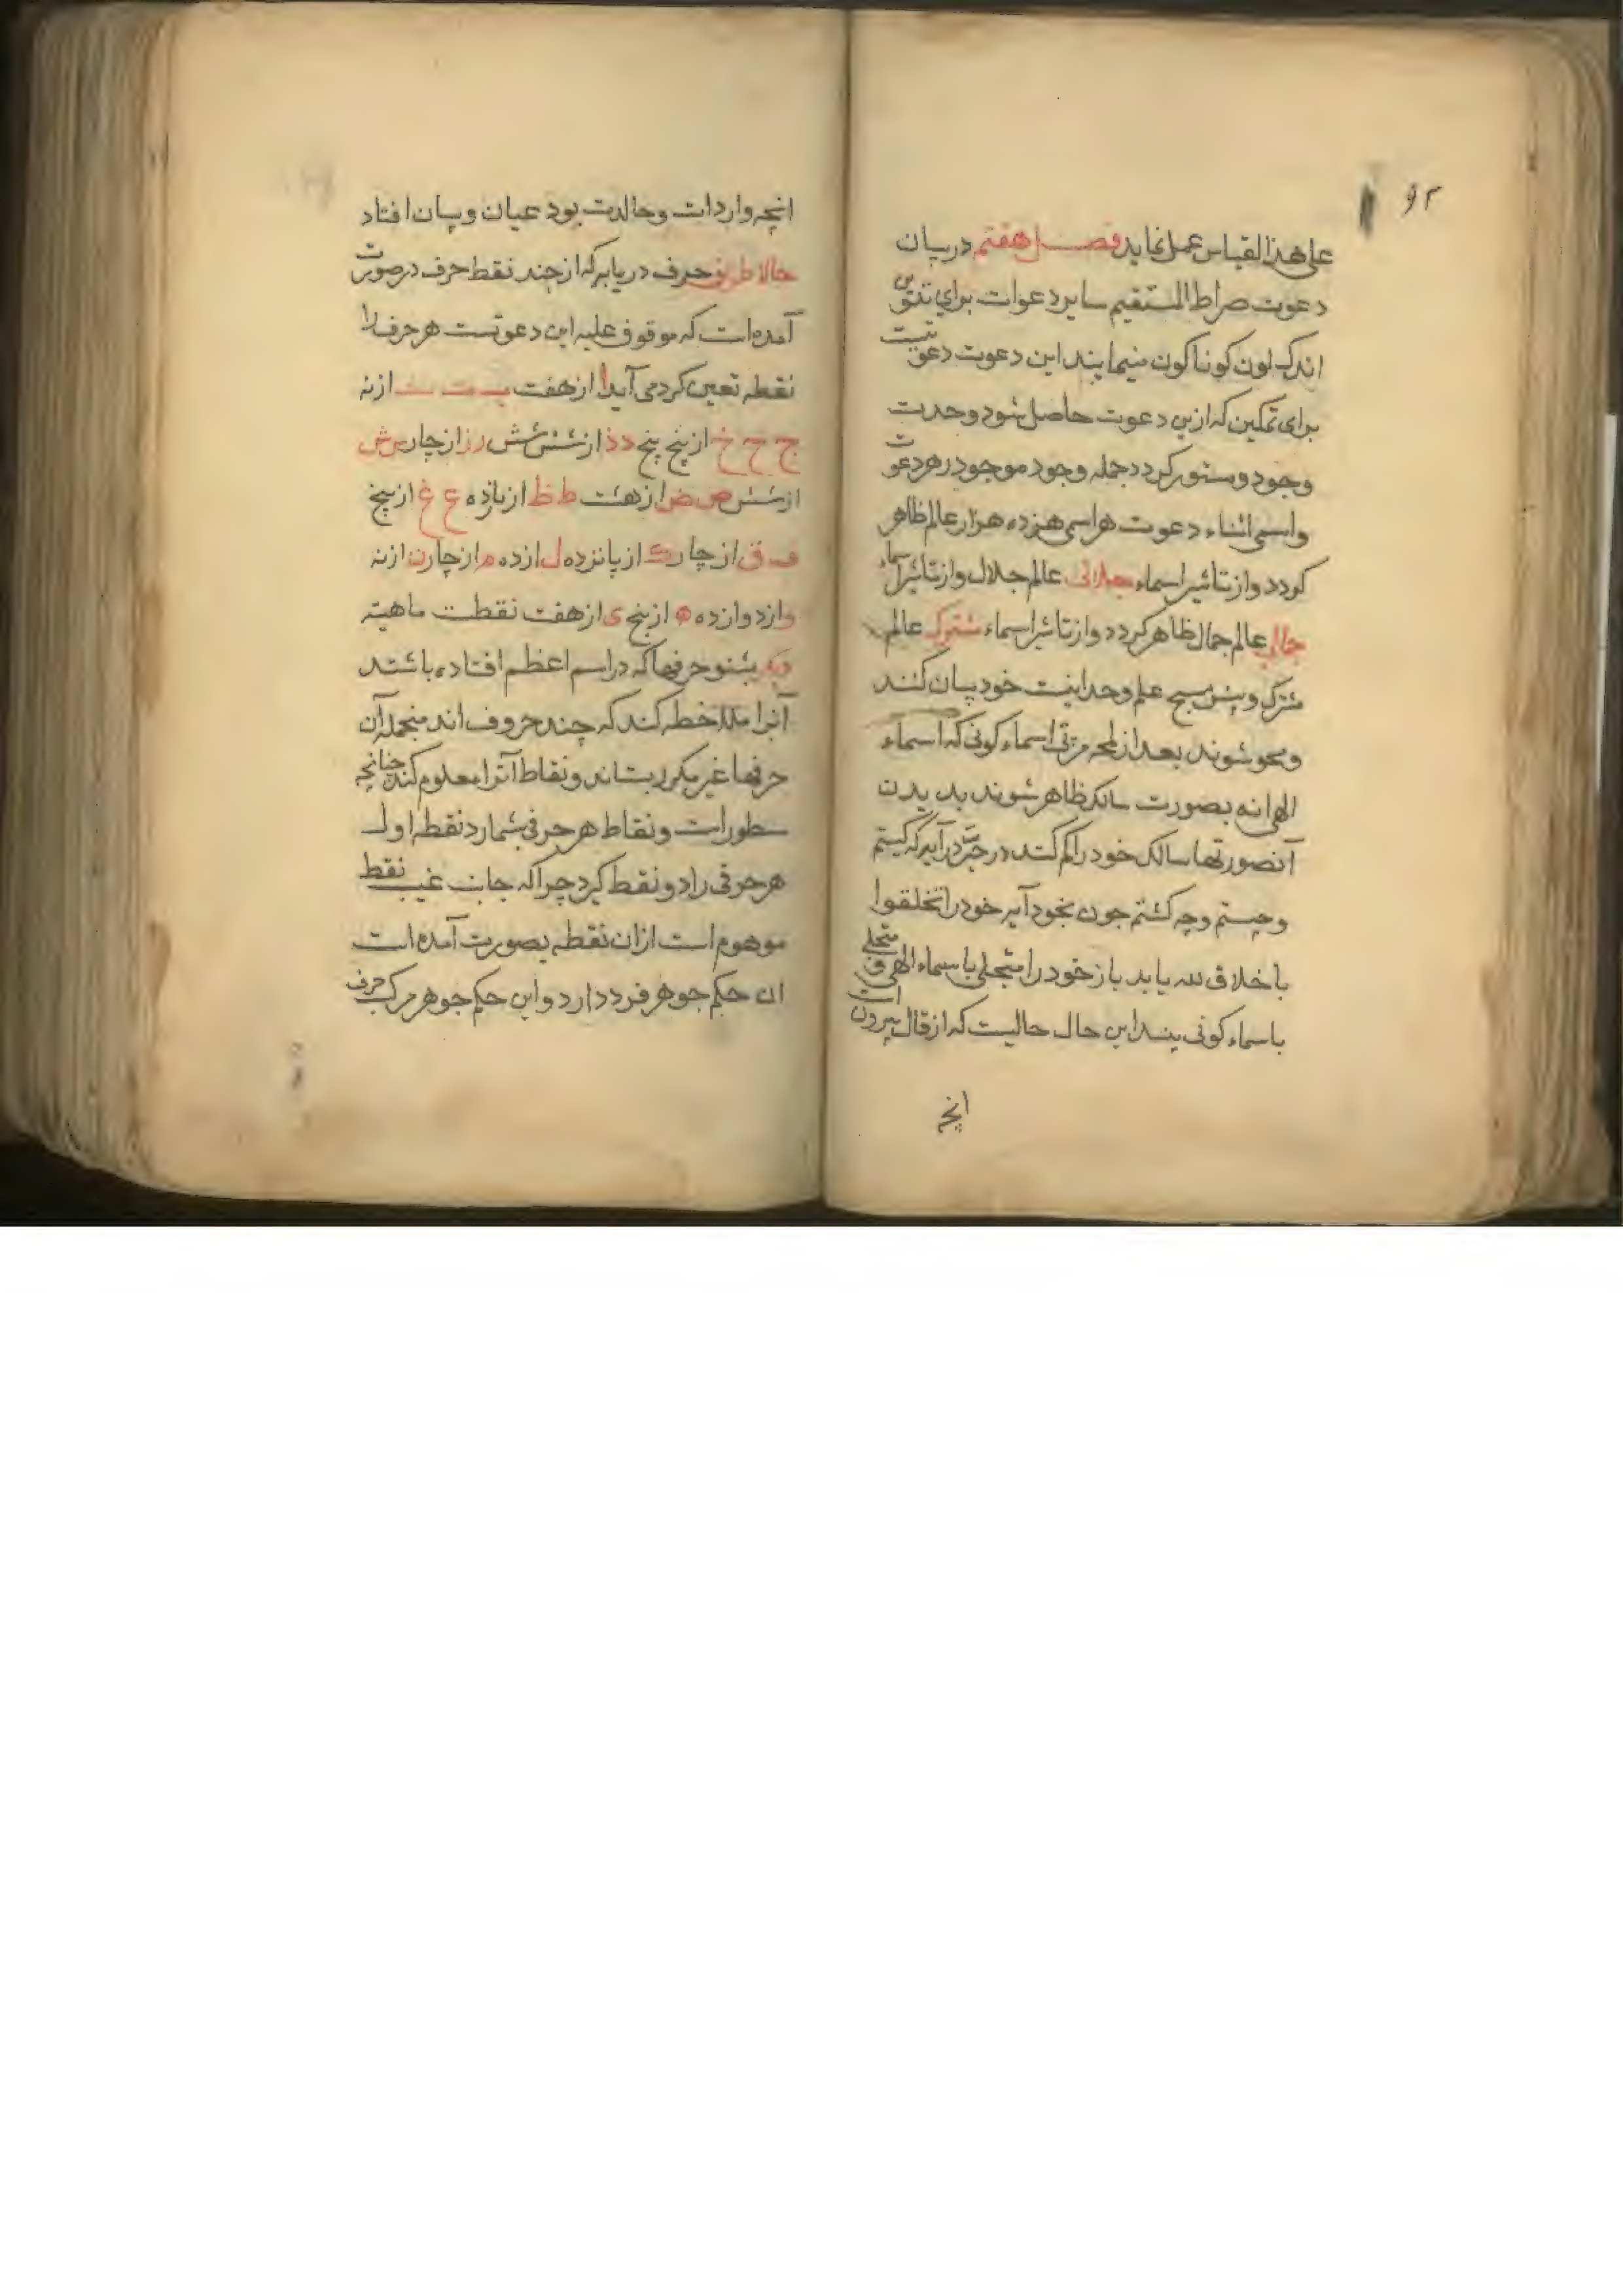 ۹۲
علی هذا القیاس عمل نماید فصل هفتم در بیان
دعوت صراط المستقیم سایر دعوات برای
اند که لون کوناکون مینمایند این دعوت دعوتیست
برای تمکین که ازین دعوت حاصل شود وحدت
وجود و مستور کردد جمله وجود موجود در هر دعوت
واسمی اثناء دعوت هر اسمی هزده هزار عالم ظاهر
کردد و از تاثیر اسماء جلالی عالم جلال و از تاثیر اسماء
جمالی عالم جمال ظاهر کردد و از تاثیر اسماء مشترک عالم
مشترک و پیش مسبح علم وحدانیت خود بیان کنند
و محو شوند بعد از لمحه مربی اسماء کونی که اسماء
الهی انه بصورت سالک ظاهر شوند بدیدن
آنصورتها سالک خود را کم کند در حیرت در آید که کیستم
و چیستم و چه کشتم چون بخود آید خود را تخلقوا
باخلاق الله یابد باز خود را متجلی باسماء الهی و متجلی
باسماء کونی بیند این حال حالیست که از قال بیرون است
انچه
انچه واردات و حالت بود عیان و بیان افتاد
حالا طریق حرف دریابر که از چند نقط حرف در صورت
آمده است که موقوف علیه این دعوتست هر حرف را
نقطه تعین کرد می آید ا از هفت ب ت ث از نه
ج ح خ از پنج پنج د ذ از شش شش ر ز از چار س ش
از شش ص ض از هشت ط ظ از یازده ع غ از پنج
ف ق از چار ک از پانزده ل از ده م از چار ن از نه
و از دوازده ه از پنج ی از هفت نقطست ماهیته
دیکر بشنو حرفها که در اسم اعظم افتاده باشند
آنرا ملاحظه کند که چند حروف اند منجمله آن
حرفها غیر مکرر بستاند و نقاط آنرا معلوم کند چنانچه
سطور است و نقاط هر حرفی بشمارد نقطه اول
هر حرفی را دو نقط کیرد چرا که جانب غیب نقط
موهوم است ازان نقطه بصورت آمده است
ان حکم جوهر فرد دارد و این حکم جوهر مرکب حرف